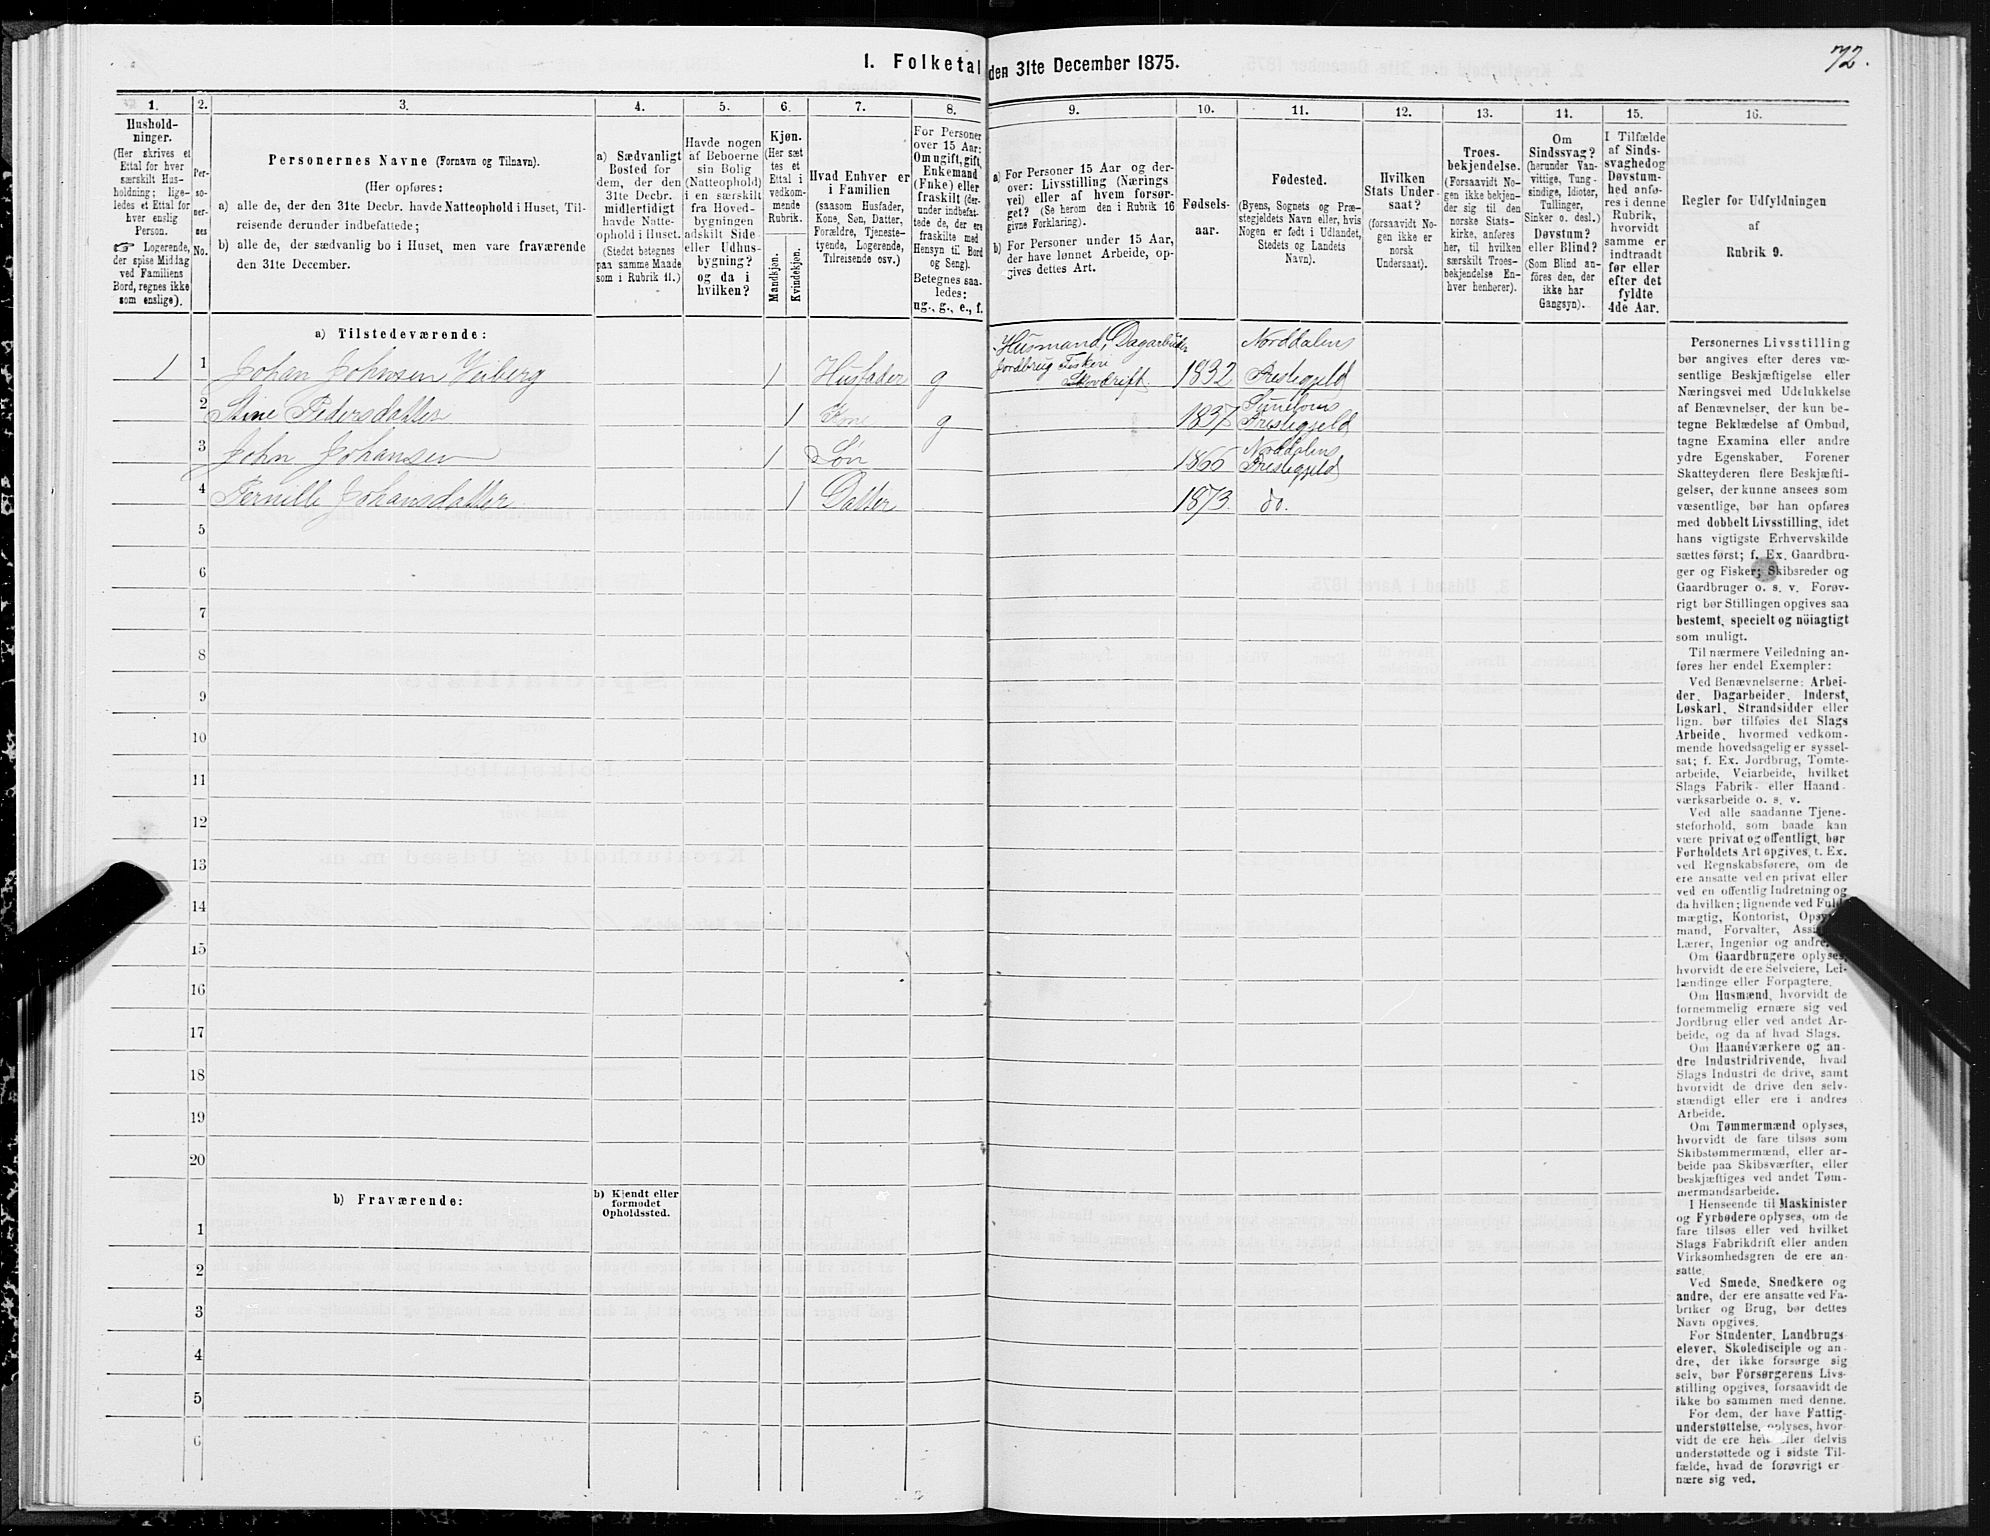 72.
1. Folketal den 31te December 1875.
1. 2. 3. 4. 5. 6. 7. 8. 9. 10. 11. 12. 13. 14. 15. 16.
Hushold-
ninger.
(Her skrives et
Ettal for hver
særskilt Hus-
holdning; lige-
ledes et Ettal for
hver enslig
Person.
☞ Logerende,
der spise Middag
ved Familiens
Bord, regnes ikke
som enslige).
Per-
so-
ner-
nes
No.
Personernes Navne (Fornavn og Tilnavn).
(Her opføres:
a) alle de, der den 31te Decbr. havde Natteophold i Huset, Til-
reisende derunder indbefattede;
b) alle de, der sædvanlig bo i Huset, men vare fraværende
den 31te December.
a) Sædvanligt
Bosted for
dem, der den
31te Decbr.
midlertidigt
havde Natte-
ophold i Huset.
(Stedet betegnes
paa samme Maade
som i Rubrik 11.)
Havde nogen
af Beboerne
sin Bolig
(Natteophold)
i en særskilt
fra Hoved-
bygningen
adskilt Side-
eller Udhus-
bygning?
og da i
hvilken?
Kjøn.
(Her sæt
tes et
Ettal i
vedkom-
mende
Rubrik.
Mandkjøn.
Kvindekjøn.
Hvad Enhver er
i Familien
(saasom Husfader,
Kone, Søn, Datter,
Forældre, Tjeneste-
tyende, Logerende,
Tilreisende osv.)
For Personer
over 15 Aar:
Om ugift, gift,
Enkemand
(Enke) eller
fraskilt (der-
under indbefat-
tede de, der ere
fraskilte med
Hensyn til Bord
og Seng).
Betegnes saa-
ledes:
ug., g., e., f.
a) For Personer 15 Aar og der-
over: Livsstilling (Nærings
vei) eller af hvem forsør-
get? (Se herom den i Rubrik 16
givne Forklaring).
b) For Personer under 15 Aar,
der have lønnet Arbeide, op-
gives dettes Art.
Fødsels-
aar.
Fødested.
(Byens, Sognets og Præ-
stegjeldets Navn eller, hvis
Nogen er født i Udlandet,
Stedets og Landets
Navn).
Hvilken
Stats Under-
saat?
(forsaavidt No-
gen ikke er
norsk
Undersaat).
Troes-
bekjendelse.
(Forsaavidt No-
gen ikke bekjen-
der sig til den
norske Stats-
kirke, anføres
her, til hvilken
særskilt Troes-
bekjendelse En-
hver henhører).
Om
Sindssvag?
(herunder Van-
vittige, Tung-
sindige, Idioter,
Tullinger,
Sinker o. desl.)
Døvstum?
eller Blind?
(Som Blind an-
føres den, der
ikke har
Gangsyn).
I Tilfælde
af Sinds-
svaghed og
Døvstum-
hed anfø-
res i denne
Rubrik,
hvorvidt
samme er
indtraadt
før eller
efter det
fyldte
4de Aar.
Regler for Udfyldningen
af
Rubrik 9.
a) Tilstedeværende:
1 1 Johan Johnsen Veiberg 1 Husfader g Husmand, Dagarbeider
Jordbrug Fiskeri
Skovdrift. 1832 Norddalens
Prestegjeld
2 Stine Pedersdatter 1 Kone g 1837 Sunelvens
Prestegjeld
3 John Johansen 1 Søn 1866 Norddalens
Prestegjeld
4 Pernille Johansdatter 1 Datter 1873. do.
5
6
7
8
9
10
11
12
13
14
15
16
17
18
19
20
b) Fraværende:
b) Kjendt eller
formodet
Opholdssted.
1
2
3
4
5
6
Personernes Livsstilling
bør angives efter deres væ-
sentlige Beskjæftigelse eller
Næringsvei med Udelukkelse
af Benævnelser, der kun be-
tegne Beklædelse af Ombud,
tagne Examina eller andre
ydre Egenskaber. Forener
Skatteyderen flere Beskjæfti-
gelser, der kunne ansees som
væsentlige, bør han opføres
med dobbelt Livsstilling, idet
hans vigtigste Erhvervskilde
sættes først; f. Ex. Gaardbru-
ger og Fisker; Skibsreder og
Gaardbruger o. s. v. Forøv-
rigt bør Stillingen opgives saa
bestemt, specielt og nöiagtigt
som muligt.
Til nærmere Veiledning an-
føres her endel Exempler:
Ved Benævnelserne: Arbei-
der, Dagarbeider, Inderst,
Løskarl, Strandsidder eller
lign. bør tilføies det Slags
Arbeide, hvormed vedkom-
mende hovedsagelig er syssel-
sat; f. Ex. Jordbrug, Tomte-
arbeide, Veiarbeide, hvilket
Slags Fabrik- eller Haand-
værksarbeide o. s. v.
Ved alle saadanne Tjene-
steforhold, som baade kan
være privat og offentligt, bør
Forholdets Art opgives, f. Ex.
ved Regnskabsførere, om de
ere ansatte ved en privat eller
ved en offentlig Indretning og
da hvilken; lignende ved Fuld-
mægtig, Kontorist, Opsyns-
mand, Forvalter, Assistent,
Lærer, Ingeniør og andre.
Om Gaardbrugere oplyses,
hvorvidt de ere Selveiere, Lei-
lændinge eller Forpagtere.
Om Husmænd, hvorvidt de
fornemmelig ernære sig ved
Jordbrug eller ved andet Ar-
beide, og da af hvad Slags.
Om Haandværkere og an-
dre Industridrivende, hvad
Slags Industri de drive, samt
hvorvidt de drive den selv-
stændigt eller ere i andres
Arbeide.
Om Tømmermænd oplyses,
hvorvidt de fare tilsøs som
Skibstømmermænd, eller ar-
beide paa Skibsværfter, eller
beskjæftiges ved andet Tøm-
mermandsarbeide.
I Henseende til Maskinister
og Fyrbødere oplyses, om de
fare tilsøs eller ved hvilket
Slags Fabrikdrift eller anden
Virksomhedsgren de ere an-
satte.
Ved Smede, Snedkere og
andre, der ere ansatte ved Fa-
briker og Brug, bør dettes
Navn opgives.
For Studenter, Landbrugs-
elever, Skoledisciple og an-
dre, der ikke forsørge sig
selv, bør Forsørgerens Livs-
stilling opgives, forsaavidt de
ikke bo sammen med denne.
For dem, der have Fattig-
understøttelse, oplyses, hvor-
vidt de ere helt eller delvis
understøttede og i sidste Til-
fælde, hvad de forøvrigt er-
nære sig ved.